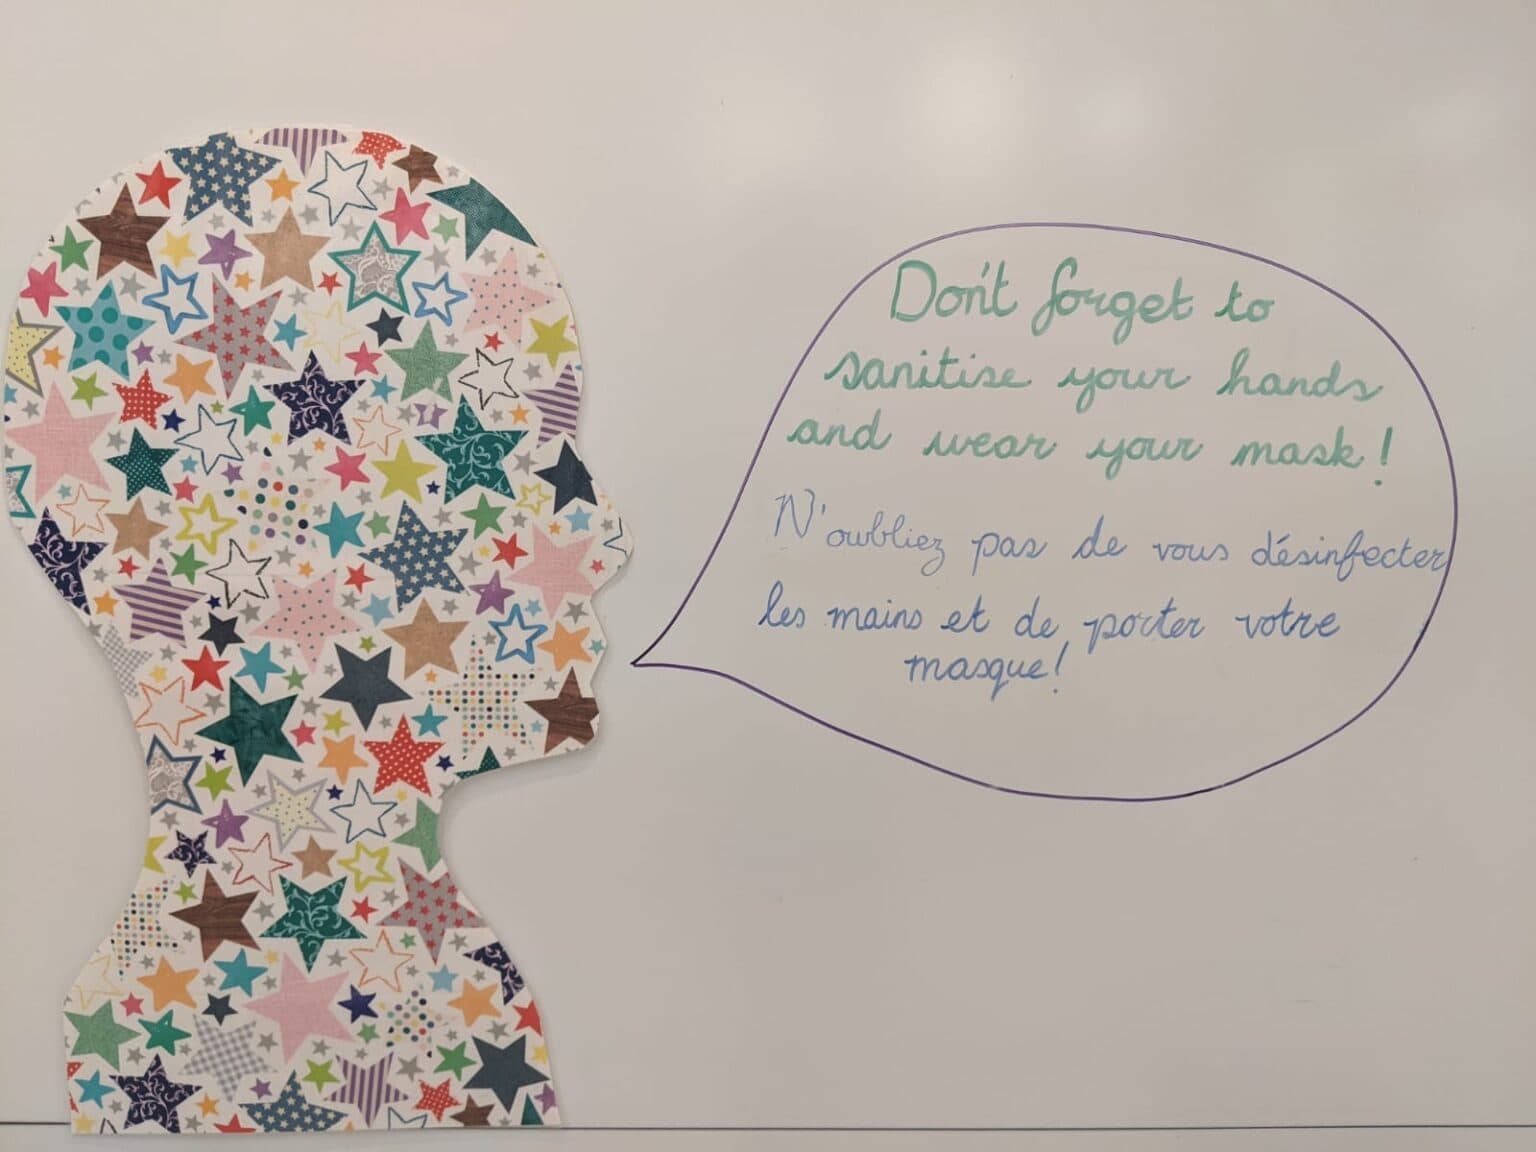 Don't forget to
sanitise your hands
and wear your mask!
N'oubliez pas de vous désinfecter
les mains et de porter votre
masque!